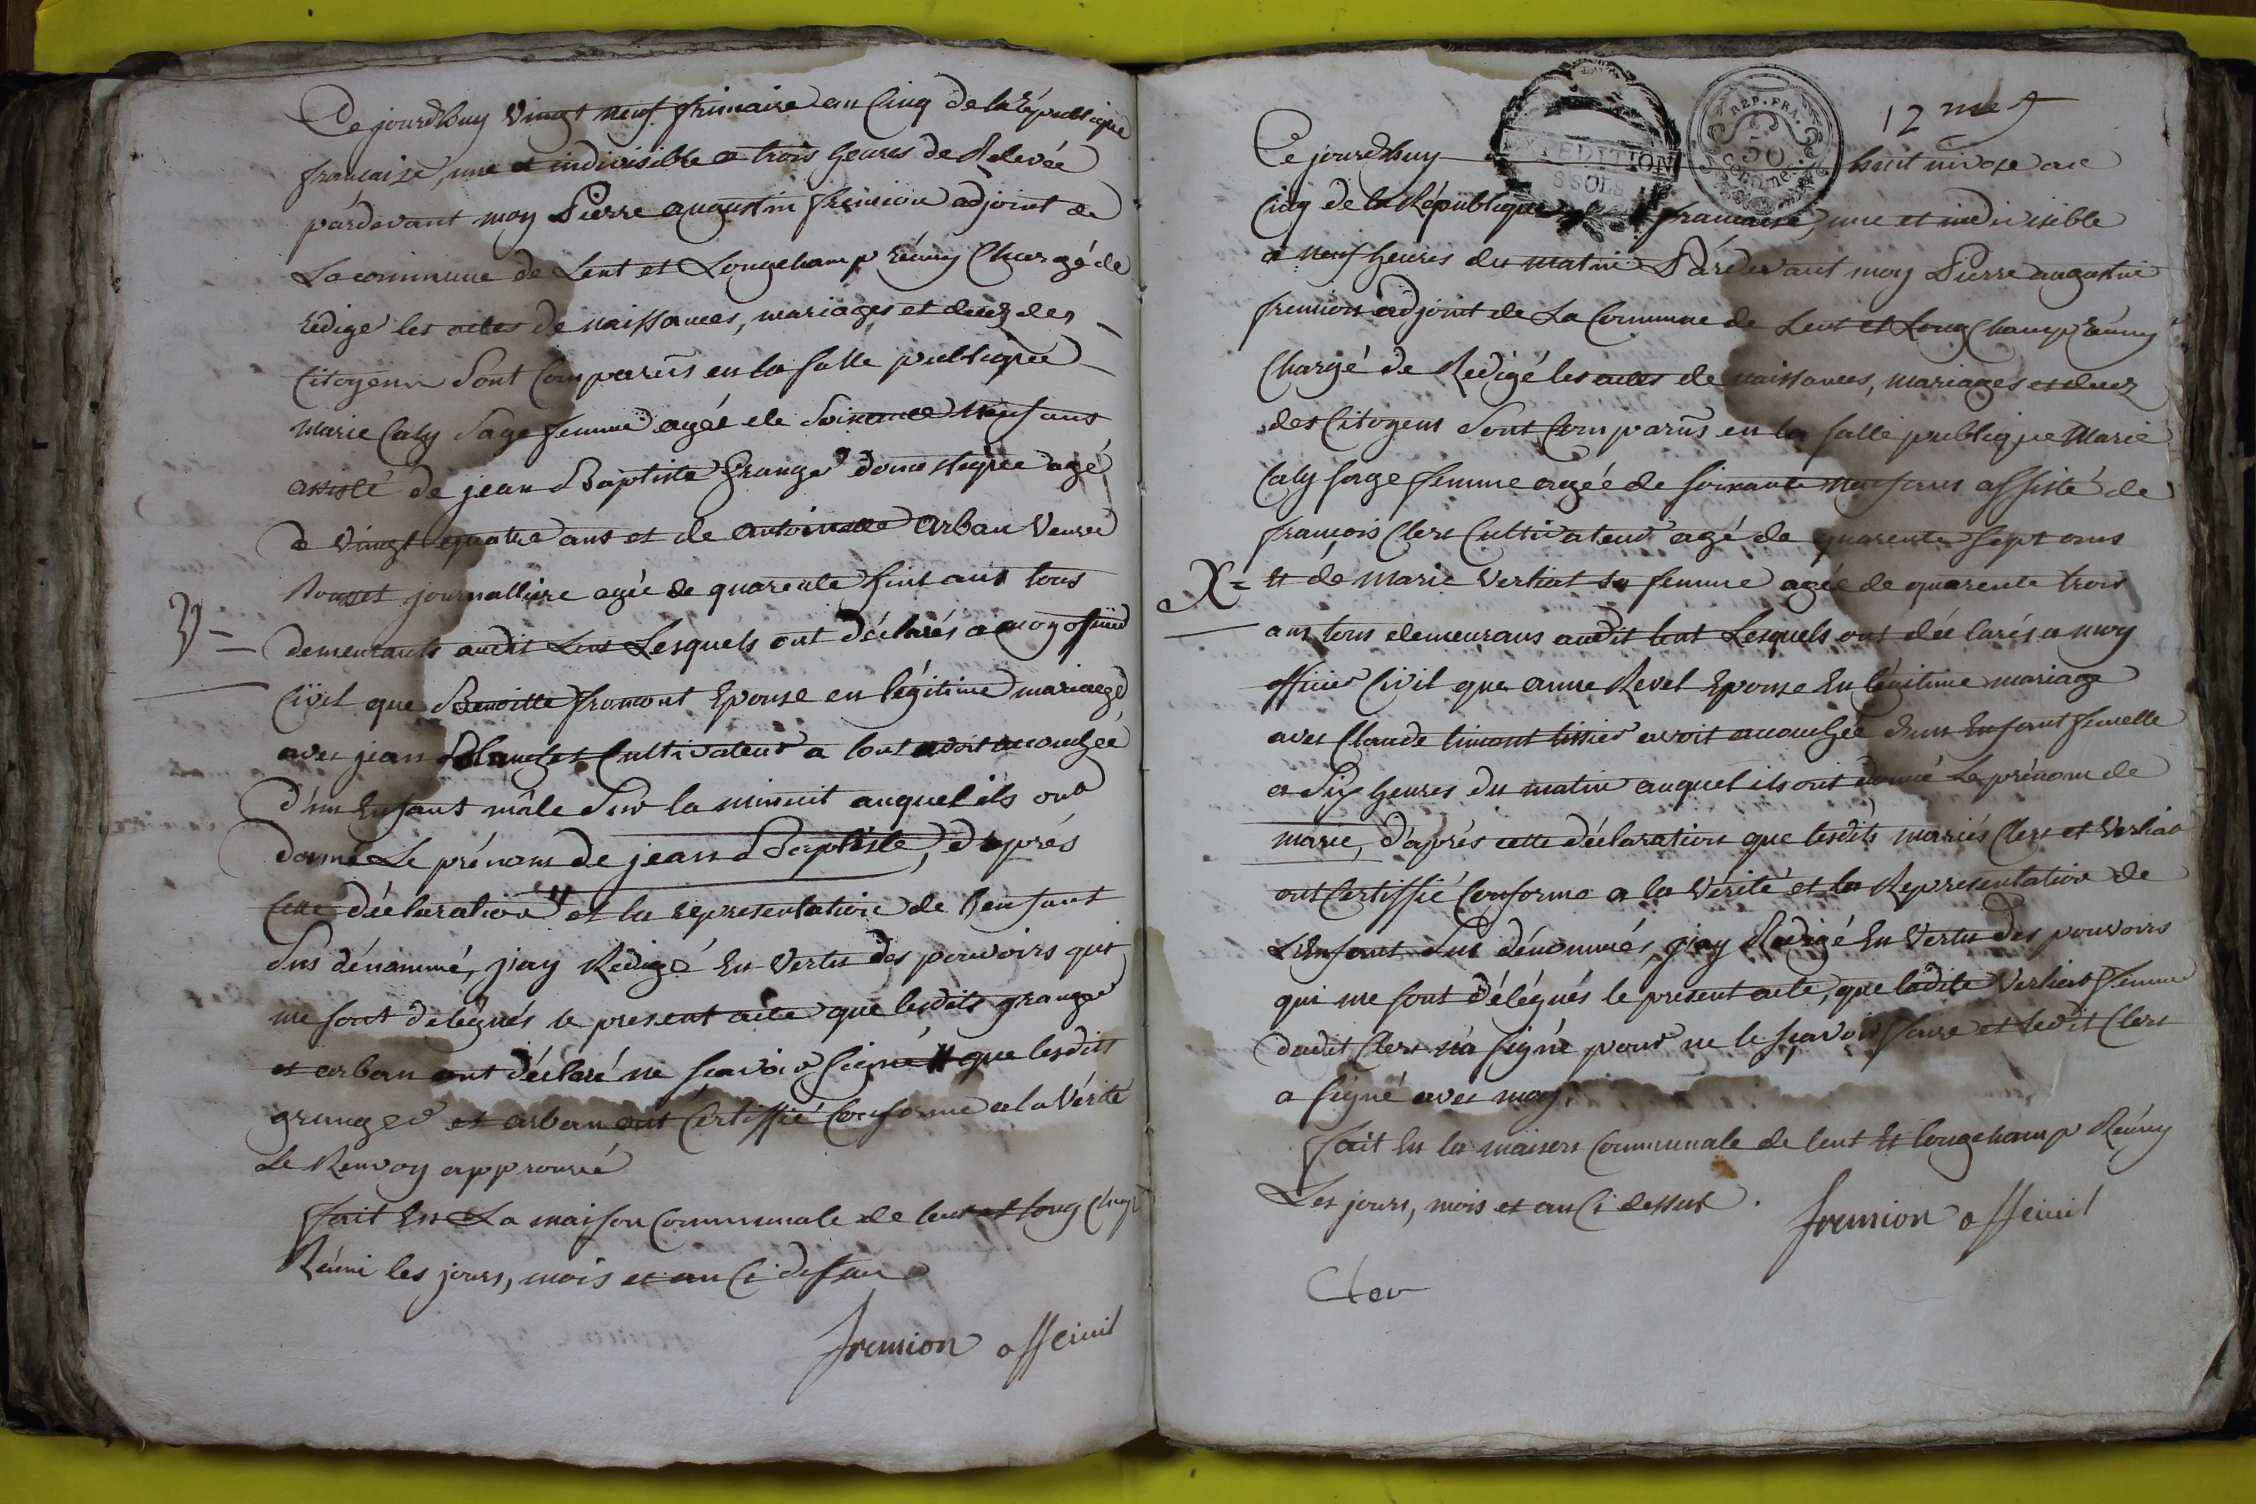 Ce jourdhuy vingt neuf frimaire an Cinq de la République
francaise, une et indivisible a trois heures de Relevée
pardevant moy Pierre augustin fremion adjoint de
La commune de Lent et Longchamp réuny Chargé de
redige les actes de naissances, mariages et decez des
Citoyens sont Comparus en la salle publique
Marie Caly Sage femme agée de Soixante neuf ans
assisté de jean Baptiste Granger domestique agé
de vingt quatre ans et de antoinette arban veuve
journalliere agée de quarente huit ans tous
V =
demeurants audit Lent Lesquels ont déclarés a moy officier
Civil que Benoitte fromont Epouse en légitime mariage
avec jean Blanchet Cultivateur a Lent avoit accouchée
d'un Enfant mâle Sur la minuit auquel ils ont
donné Le prénom de jean Baptiste, d'aprés
Cette déclaration # et la representation de l'enfant
Sus dénommé, j'ay Rédigé En vertu des pouvoirs qui
me sont délégués le present acte que lesdits granger
et arban ont déclaré ne scavoir signé # que lesdits
granger et arban ont Certiffié Conforme a la vérité
Le Renvoy approuvé
fait En La maison Communale de lent et long champ
Réuni les jours, mois et an Ci dessus
fremion off civil
12 me f
EXPEDITION
8 SOLS
REP. FRA.
50
centime
Ce jourdhuy huit nivose an
Cinq de la République francaise, une et indivisible
a neuf heures du matin Pardevant moy Pierre augustin
fremion adjoint de La Commune de Lent et Long Champ Réuny
Chargé de Redigé les actes de naissances, mariages et decez
des Citoyens sont Comparus en la salle publique Marie
Caly sage femme agée de soixante neuf ans assisté de
françois Clerc Cultivateur agé de quarente sept ans
X =
Et de Marie Verliat sa femme agée de quarente trois
ans tous demeurans audit lent Lesquels ont déclarés a moy
officier Civil que anne Revel Epouse En légitime mariage
avec Claude timont tissier avoit accouchée d'un Enfant femelle
a Six heures du matin auquel ils ont donné Le prénom de
marie, d'aprés cette déclaration que lesdits mariés Clerc et Verliat
ont Certiffié Conforme a la Vérité et la Representation de
L'Enfant sus dénommés, j'ay Redigé En Vertu des pouvoirs
qui me sont délégués le present acte, que ladite Verliat femme
dudit Clerc n'a signé pour ne le scavoir faire et ledit Clerc
a signé avec moy.
fait En la maison Communale de lent Et longchamp Réuny
Les jours, mois et an Ci dessus.
fremion off civil
Cler